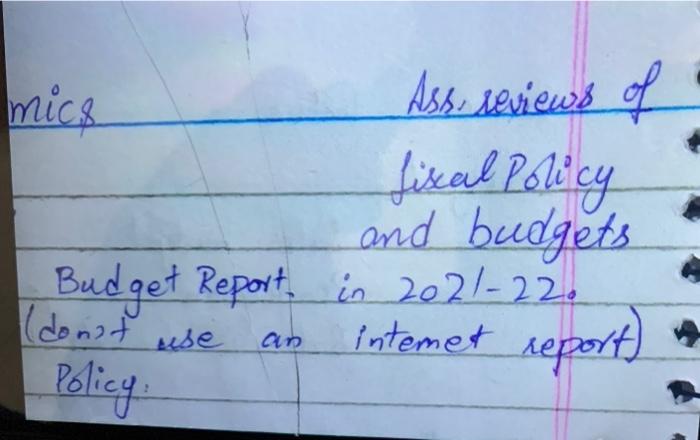 mics Ass. reviews of
fiscal Policy
and budgets
Budget Report. in 2021-22.
(don't use an internet report)
Policy.